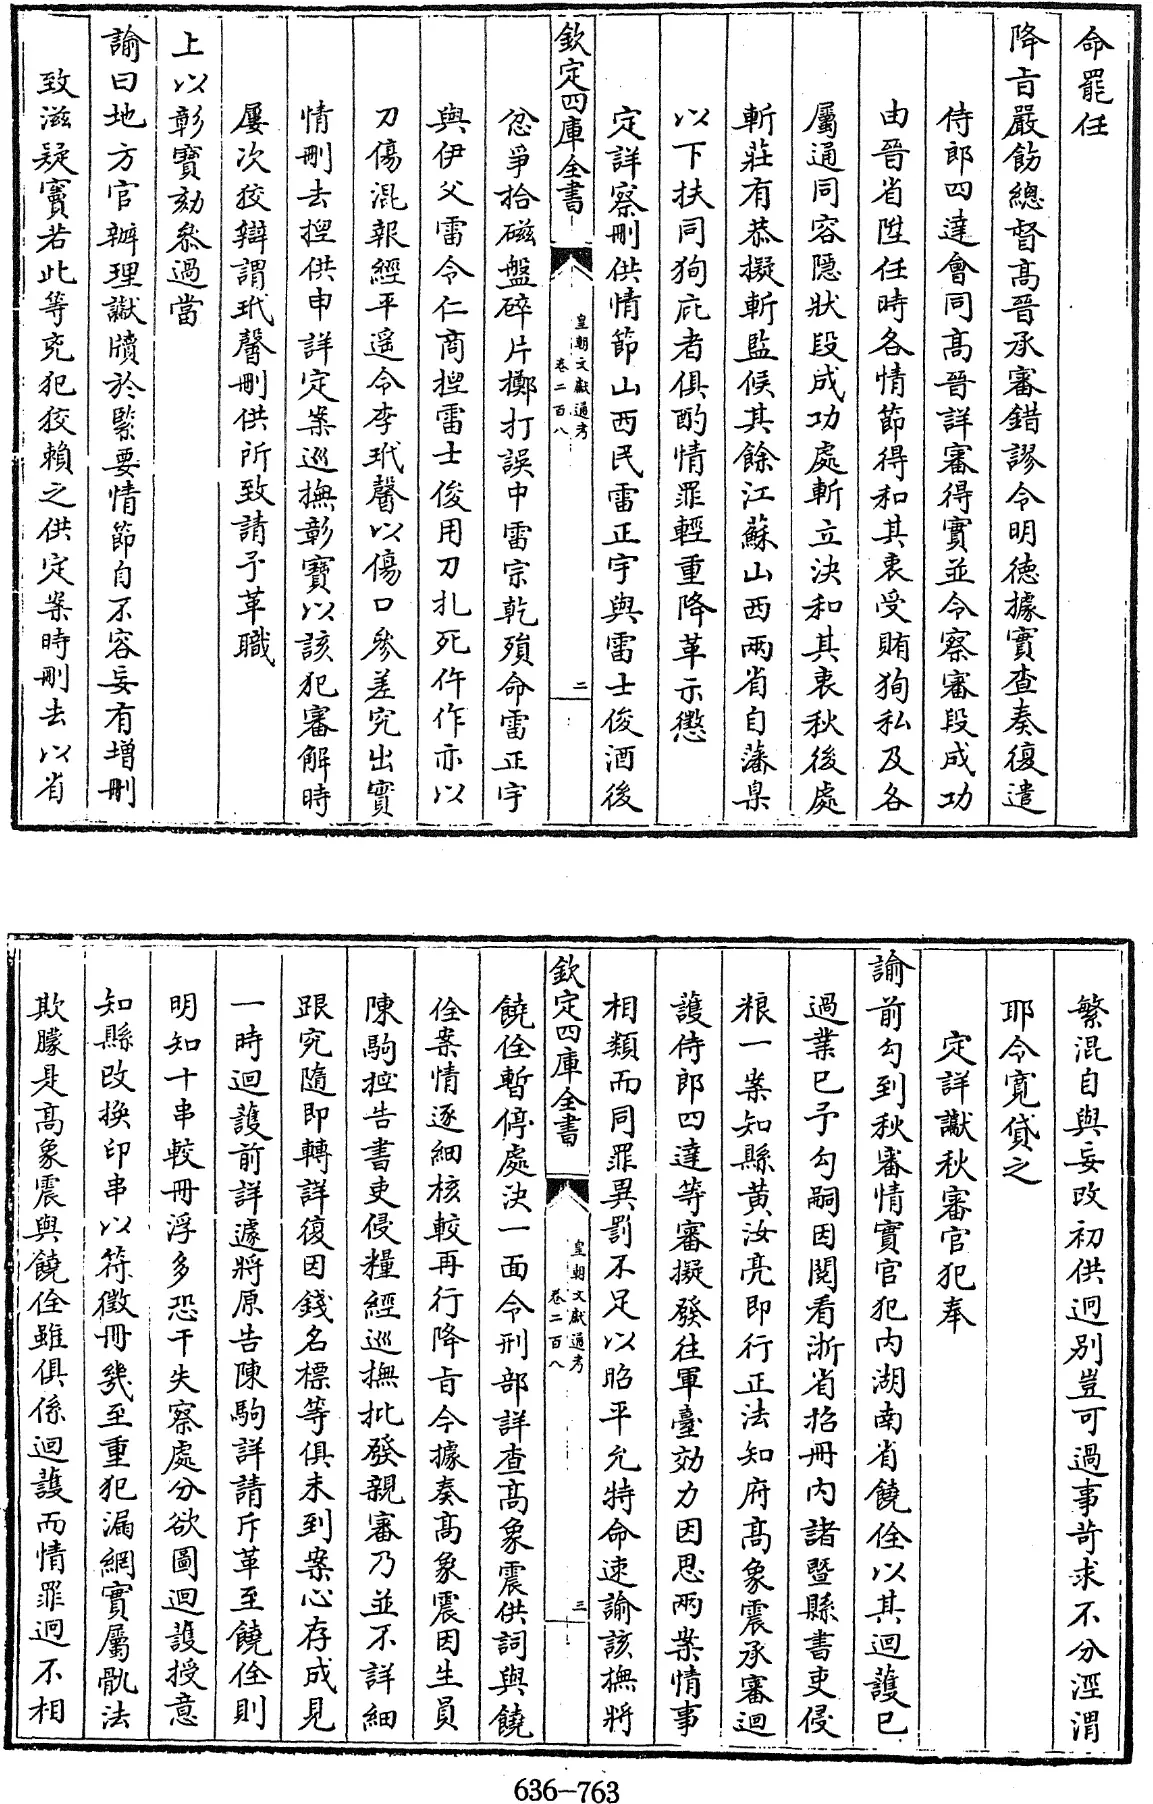 命罷任
降㫖嚴飭總督髙晉承審錯謬令明德據實查奏復遣
侍郎四達會同髙晉詳審得實並令察審段成功
由晉省陞任時各情節得和其衷受賄狥私及各
屬通同容隱狀段成功處斬立決和其衷秋後處
斬莊有恭擬斬監候其餘江蘇山西兩省自藩臬
以下扶同狥庇者俱酌情罪輕重降革示懲
定詳察刪供情節山西民雷正宇與雷士俊酒後
欽定四庫全書
皇朝文獻通考
卷二百八
二
忿爭拾磁盤碎片擲打誤中雷宗乾殞命雷正宇
與伊父雷令仁商揑雷士俊用刀扎死仵作亦以
刀傷混報經平遥令李玳馨以傷口參差究出實
情刪去揑供申詳定案巡撫彰寶以該犯審解時
屢次狡辯謂玳馨刪供所致請予革職
上以彰寶劾叅過當
諭曰地方官辦理讞牘於緊要情節自不容妄有增刪
致滋疑竇若此等兇犯狡賴之供定案時刪去以省
繁混自與妄改初供迥别豈可過事苛求不分涇渭
耶令寛貸之
定詳讞秋審官犯奉
諭前勾到秋審情實官犯内湖南省饒佺以其迴護已
過業已予勾嗣因閲看浙省招冊内諸暨縣書吏侵
粮一案知縣黄汝亮即行正法知府髙象震承審迴
護侍郎四達等審擬發往軍臺効力因思兩案情事
相類而同罪異罰不足以昭平允特命速諭該撫將
欽定四庫全書
皇朝文獻通考
卷二百八
三
饒佺暫停處決一面令刑部詳查髙象震供詞與饒
佺案情逐細核較再行降㫖今據奏髙象震因生員
陳駒控告書吏侵糧經巡撫批發親審乃並不詳細
跟究隨即轉詳復因錢名標等俱未到案心存成見
一時迴護前詳遽將原告陳駒詳請斥革至饒佺則
明知十串較冊浮多恐干失察處分欲圖迴護授意
知縣改換印串以符徵冊幾至重犯漏網實屬骫法
欺朦是髙象震與饒佺雖俱係迴護而情罪迥不相
636-763